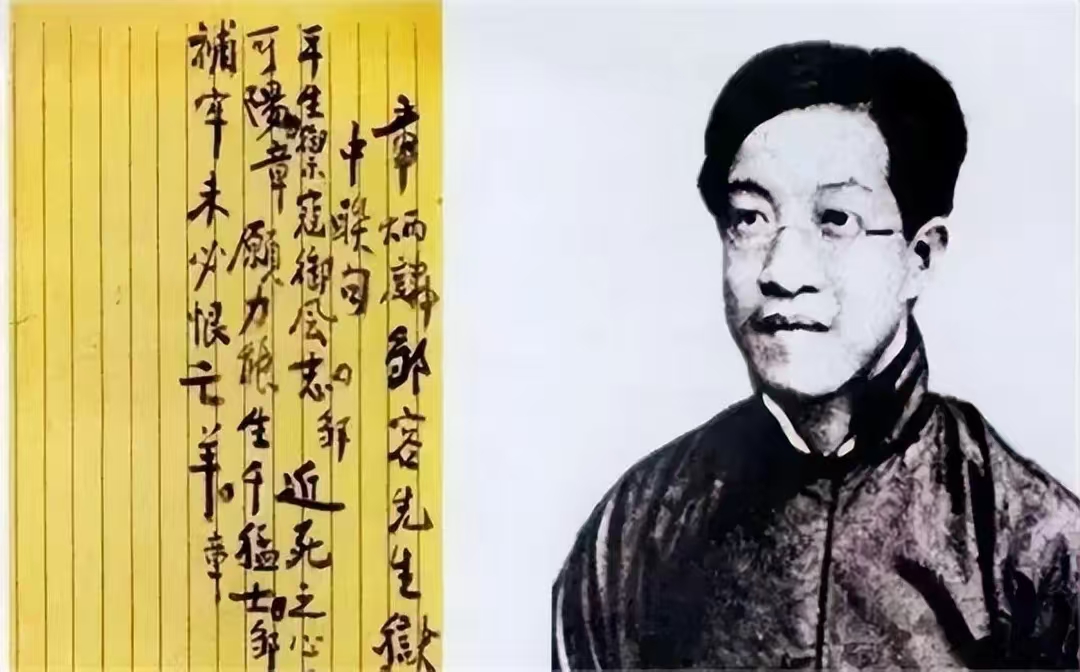 章炳麟鄒容先生獄
中聯句。
平生禦寇御风志。邹 近死之心
可陽。章 願力能生千猛士。邹
補牢未必恨亡羊。章